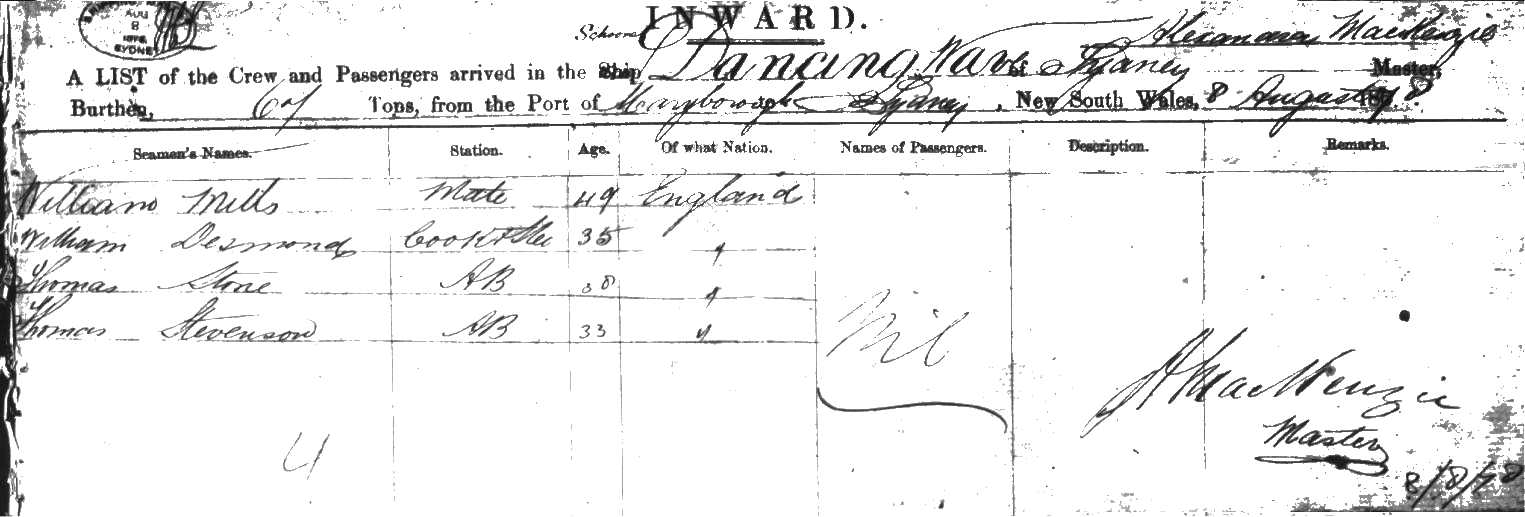 AUG
8
1878
SYDNEY
INWARD.
Schooner Dancing Wave of Sydney Alexander MacKenzie Master,
A LIST of the Crew and Passengers arrived in the Ship
Burthen, 67 Tons, from the Port of Maryborough Sydney, New South Wales, 8 August 1878.
Seamen's Names. Station. Age. Of what Nation. Names of Passengers. Description. Remarks.
William Mills Mate 49 England
William Desmond Cook & Stew 35 "
Thomas Stone AB "
Thomas Stevenson AB 33 "
Nil
A MacKenzie
Master
4
8/8/78